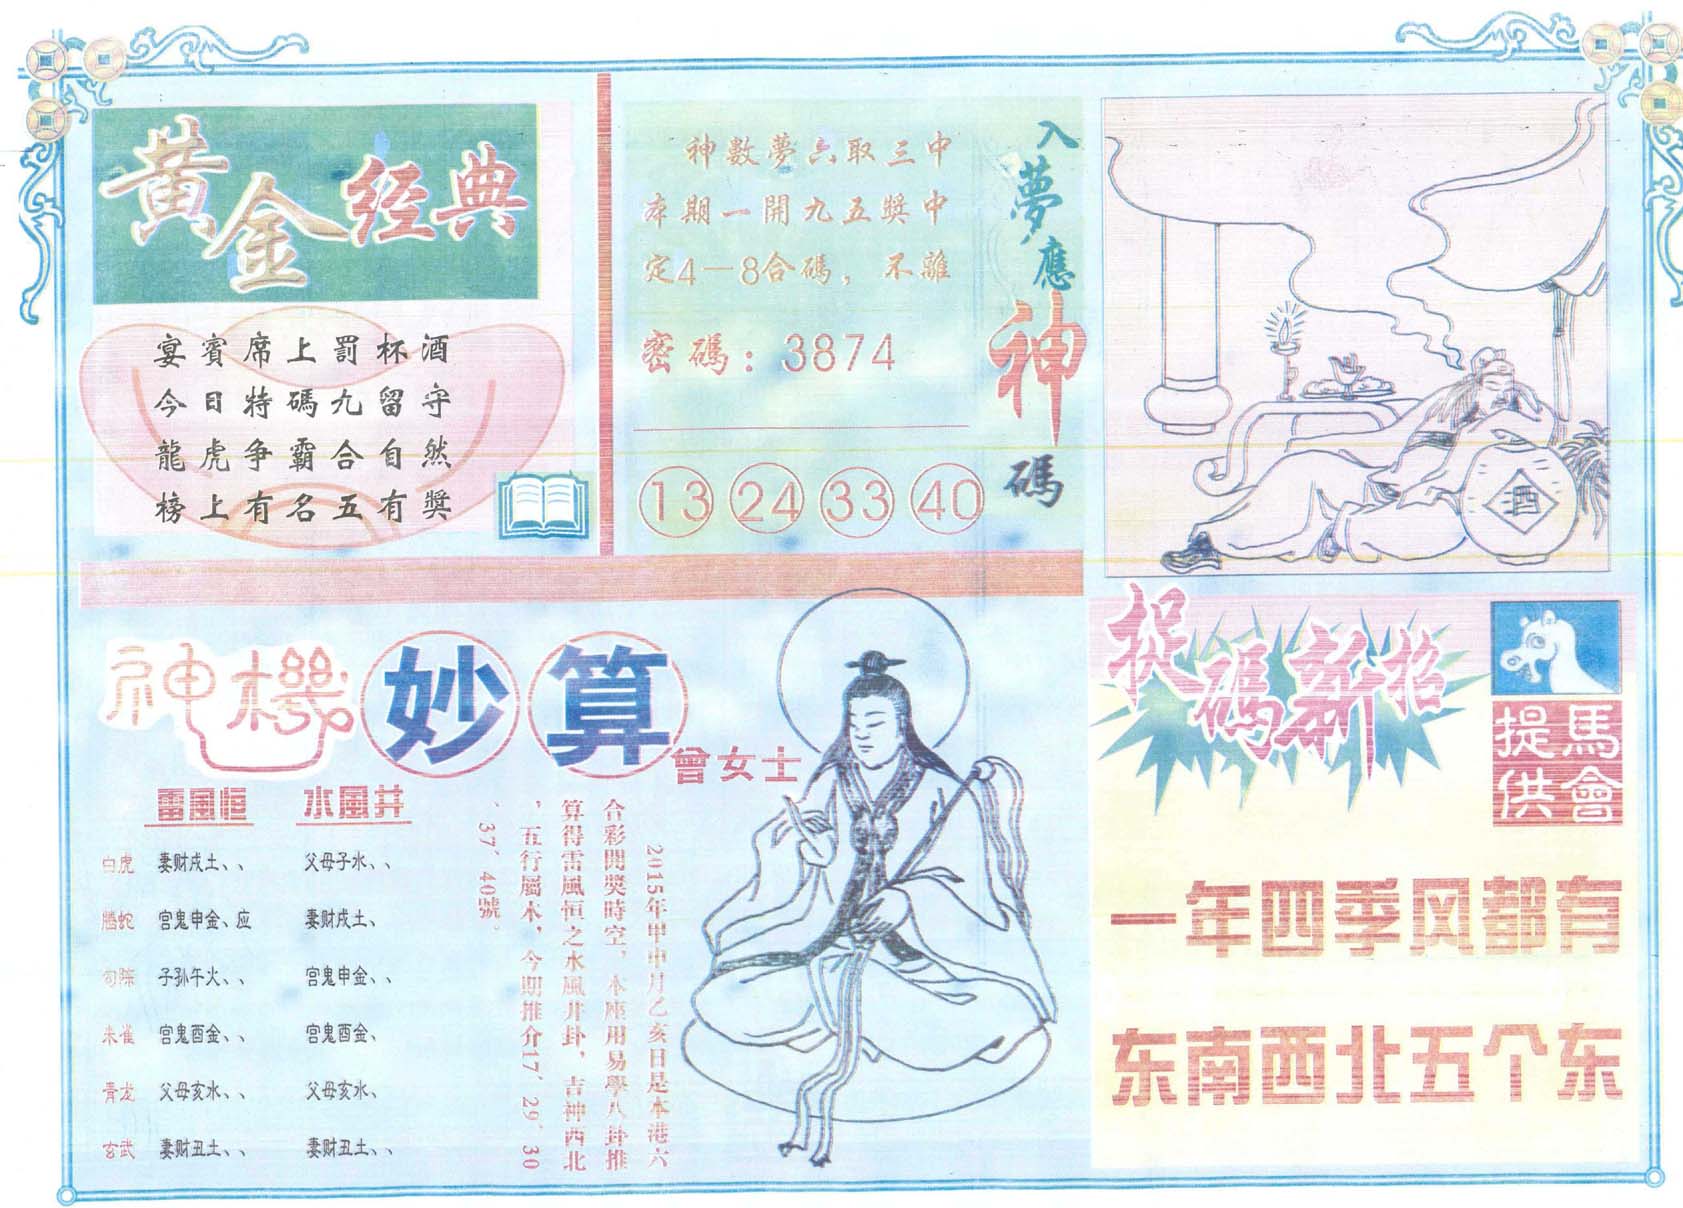 黃金经典
宴賓席上罰杯酒
今日特碼九留守
龍虎爭霸合自然
榜上有名五有獎
神數夢六取三中
本期一開九五獎中
定4一8合碼，不離
密碼：3874
13 24 33 40
入夢應神碼
酒
神機妙算
曾女士
雷風恒 水風井
白虎 妻财戌土、、 父母子水、、
腾蛇 宫鬼申金、应 妻财戌土、
勾陈 子孙午火、、 宫鬼申金、、
朱雀 宫鬼酉金、、 宫鬼酉金、
青龙 父母亥水、、 父母亥水、
玄武 妻财丑土、、 妻财丑土、、
2015年甲申月乙亥日是本港六
合彩開獎時空，本座用易學八卦推
算得雷風恒之水風井卦，吉神西北
，五行屬木，今期推介17、29、30
、37、40號。
捉碼新招
馬會
提供
一年四季风都有
东南西北五个东